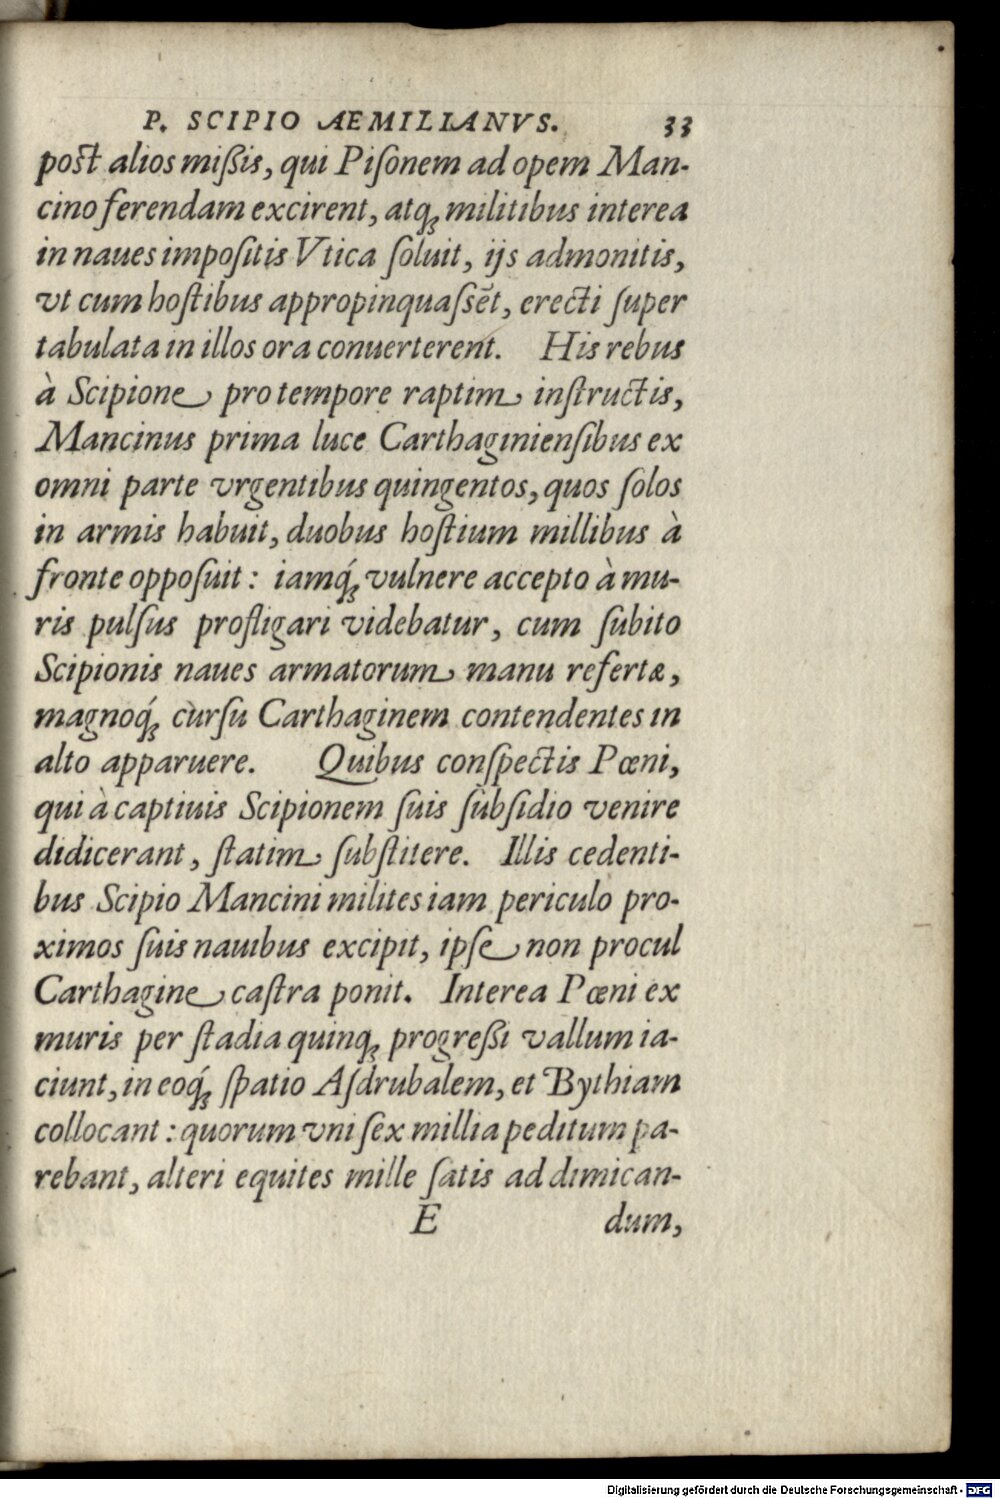 P. SCIPIO AEMILIANVS. 33
post alios mißis, qui Piſonem ad opem Man-
cino ferendam excirent, atqꝫ militibus interea
in naues impoſitis Vtica ſoluit, ijs admonitis,
vt cum hoſtibus appropinquaſsēt, erecti ſuper
tabulata in illos ora conuerterent. His rebus
à Scipione pro tempore raptim inſtructis,
Mancinus prima luce Carthaginienſibus ex
omni parte vrgentibus quingentos, quos ſolos
in armis habuit, duobus hoſtium millibus à
fronte oppoſuit: iamq́ꝫ vulnere accepto à mu-
ris pulſus profligari videbatur, cum ſubito
Scipionis naues armatorum manu refertæ,
magnoq́ꝫ curſu Carthaginem contendentes in
alto apparuere. Quibus conſpectis Pœni,
qui à captiuis Scipionem ſuis ſubſidio venire
didicerant, ſtatim ſubſtitere. Illis cedenti-
bus Scipio Mancini milites iam periculo pro-
ximos ſuis nauibus excipit, ipſe non procul
Carthagine caſtra ponit. Interea Pœni ex
muris per ſtadia quinqꝫ progreßi vallum ia-
ciunt, in eoq́ꝫ ſpatio Aſdrubalem, et Bythiam
collocant: quorum vni ſex millia peditum pa-
rebant, alteri equites mille ſatis ad dimican-
E dum,
Digitalisierung gefördert durch die Deutsche Forschungsgemeinschaft - DFG